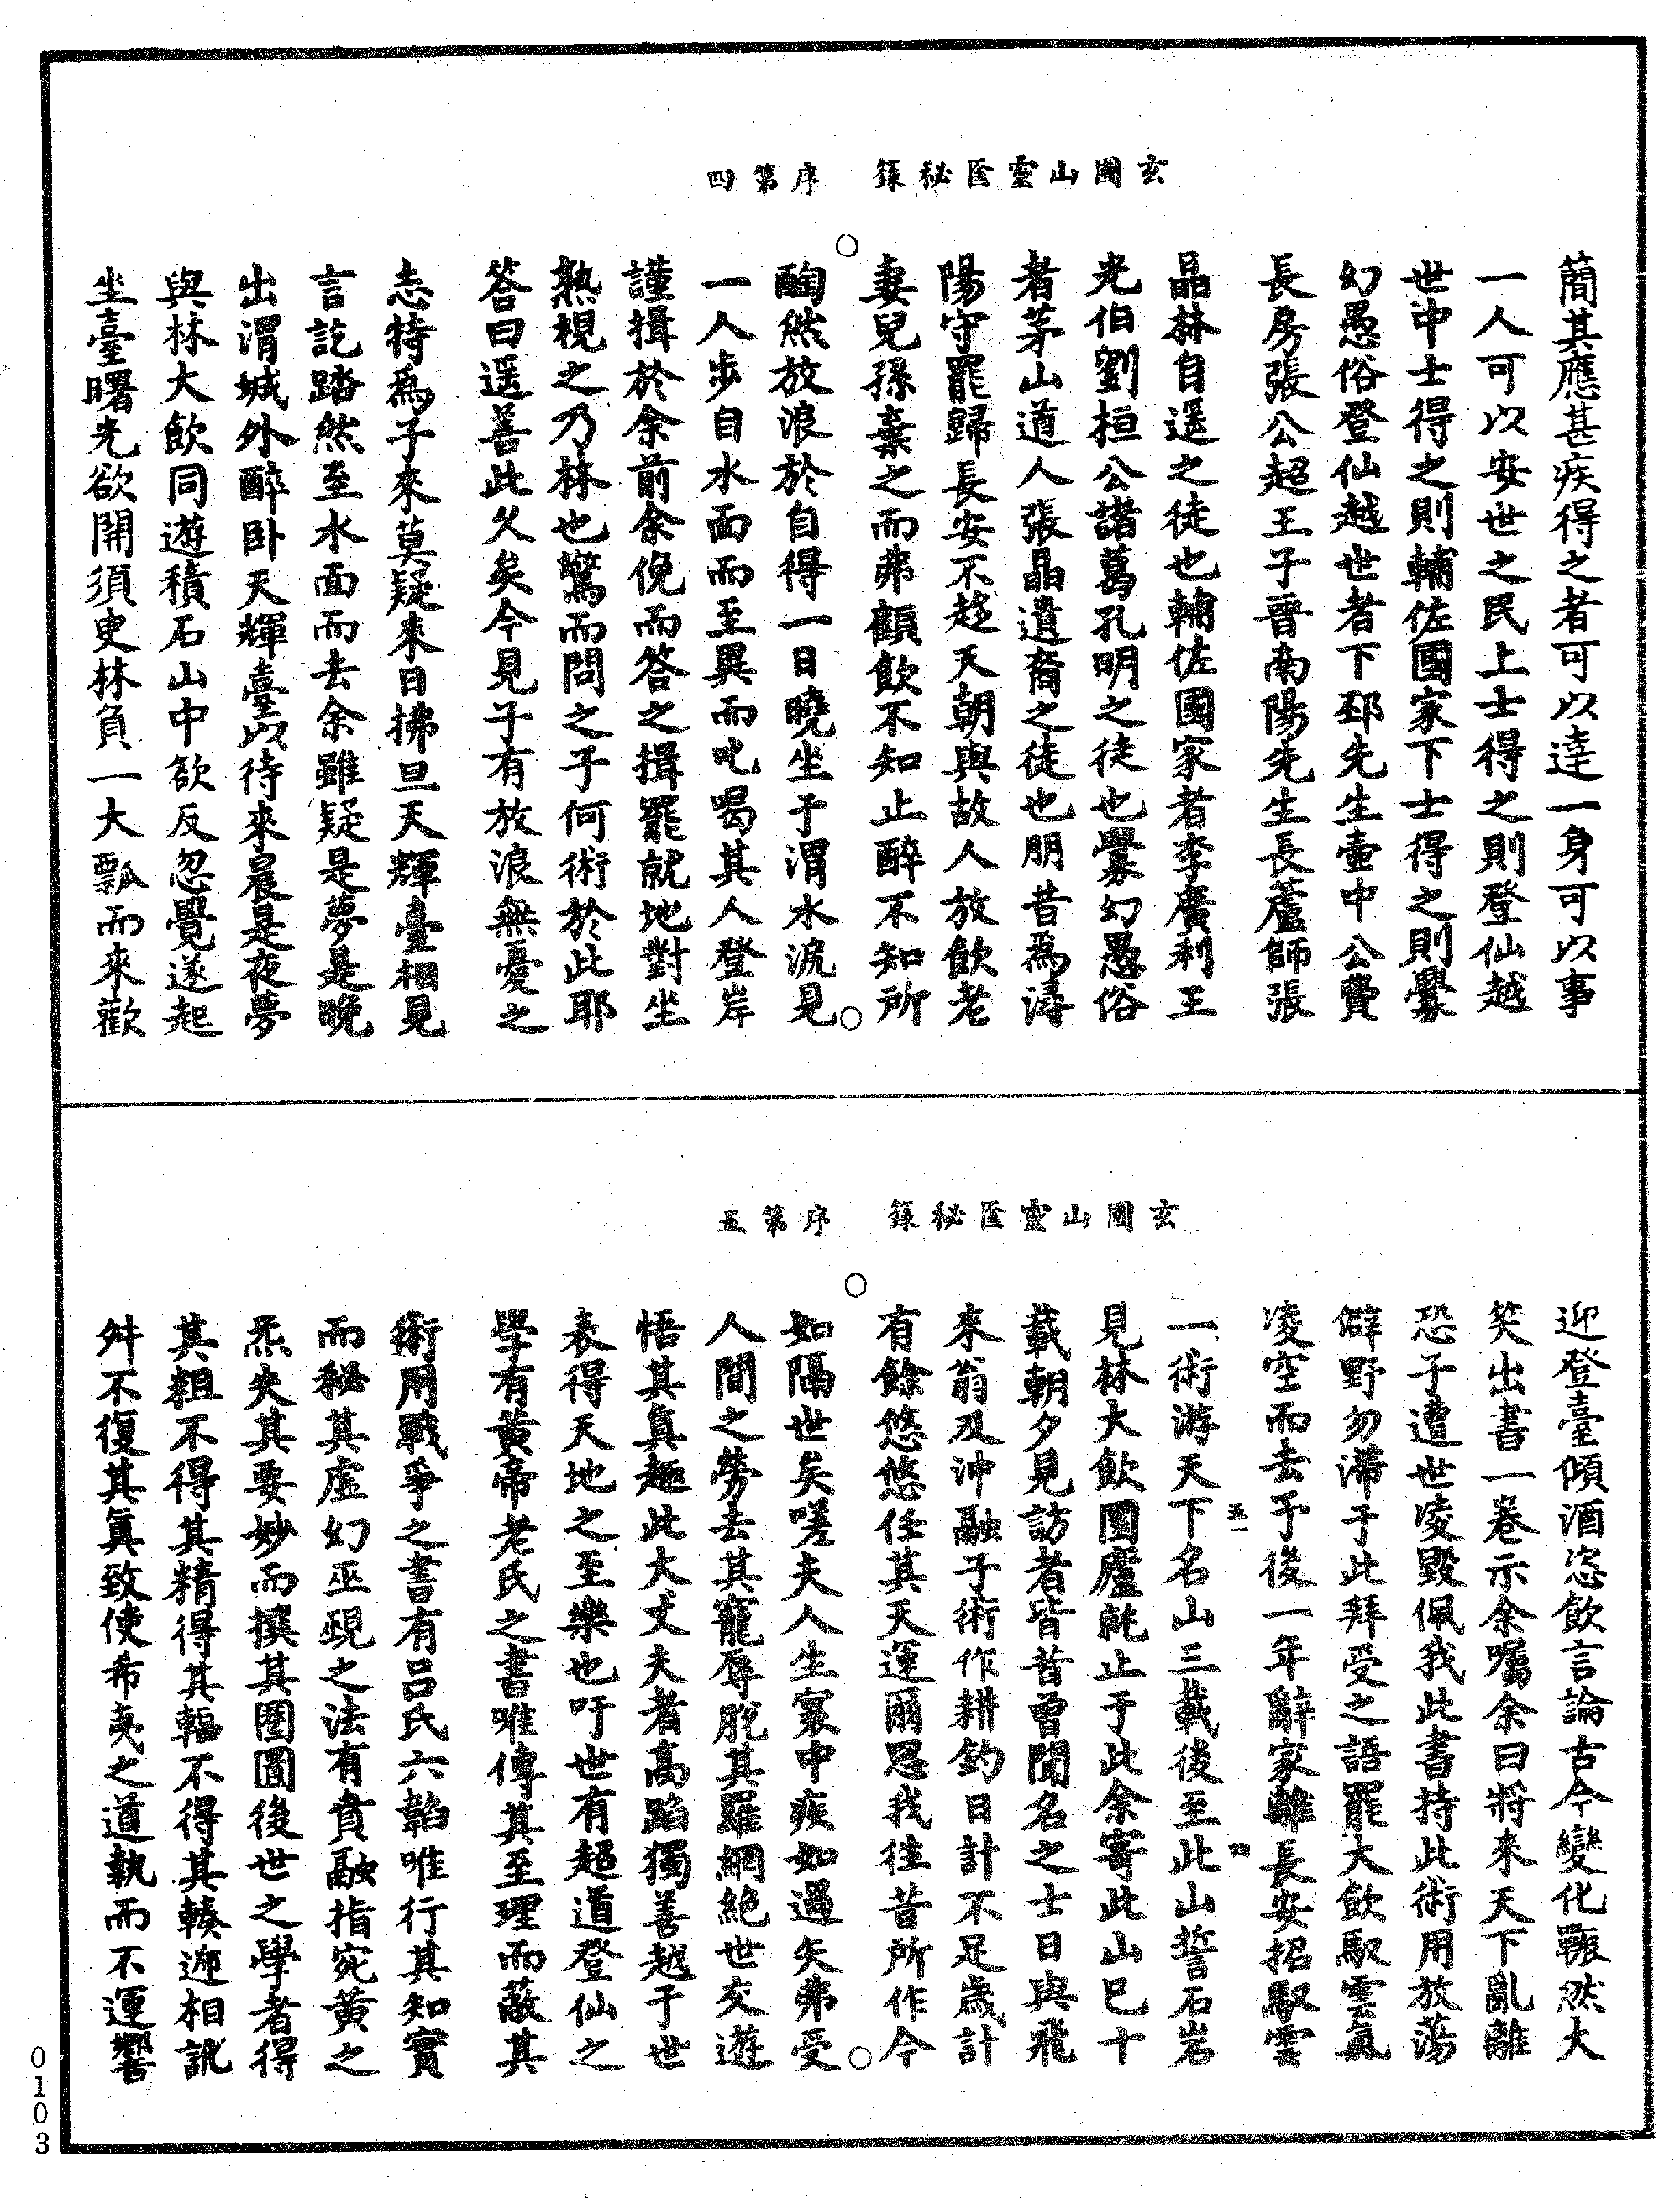 玄圃山靈匱秘籙　序第四
簡其應甚疾得之者可以達一身可以事
一人可以安世之民上士得之則登仙越
世中士得之則輔佐國家下士得之則纍
幻愚俗登仙越世者下邳先生壺中公費
長房張公超王子晉南陽先生長蘆師張
晶林自遥之徒也輔佐國家者李廣利王
光伯劉桓公諸葛孔明之徒也纍幻愚俗
者茅山道人張晶遺裔之徒也朋昔為潯
陽守罷歸長安不趍天朝與故人放飲老
妻兒孫棄之而弗顧飲不知止醉不知所
醄然放浪於自得一日曉坐于渭水派見
一人步自水面而至異而叱喝其人登岸
謹揖於余前余俛而答之揖罷就地對坐
熟視之乃林也驚而問之子何術於此耶
答曰遥善此久矣今見子有放浪無憂之
志特為子來莫疑來日拂旦天輝臺相見
言訖踏然至水面而去余雖疑是夢是晚
出渭城外醉卧天輝臺以待來晨是夜夢
與林大飲同遊積石山中欲反忽覺遂起
坐臺曙光欲開須臾林負一大瓢而來歡
玄圃山靈匱秘籙　序第五
迎登臺傾酒恣飲言論古今變化冁然大
笑出書一卷示余囑余曰將來天下亂離
恐子遭世凌毀佩我此書持此術用放蕩
僻野勿滯于此拜受之語罷大飲馭雲氣
凌空而去予後一年辭家離長安招馭雲
一術游天下名山三載後至此山誓石岩
見林大飲圍廬毧止于此余寄此山已十
載朝夕見訪者皆昔曾聞名之士日與飛
來翁及沖融子術作耕釣日計不足歲計
有餘悠悠任其天運爾思我徃昔所作今
如隔世矣嗟夫人生寰中疾如過矢弗受
人間之勞去其寵辱脫其羅網絶世交遊
悟其真趣此大丈夫者高蹈獨善越于世
表得天地之至樂也吁世有超道登仙之
學有黄帝老氏之書唯傳其至理而蔽其
術用戰爭之書有吕氏六韜唯行其知實
而秘其虛幻巫覡之法有賁融指宛黄之
炁失其要妙而撰其圈圓後世之學者得
其粗不得其精得其輻不得其輳迎相訛
舛不復其真致使希夷之道執而不運響
五一
四
0103